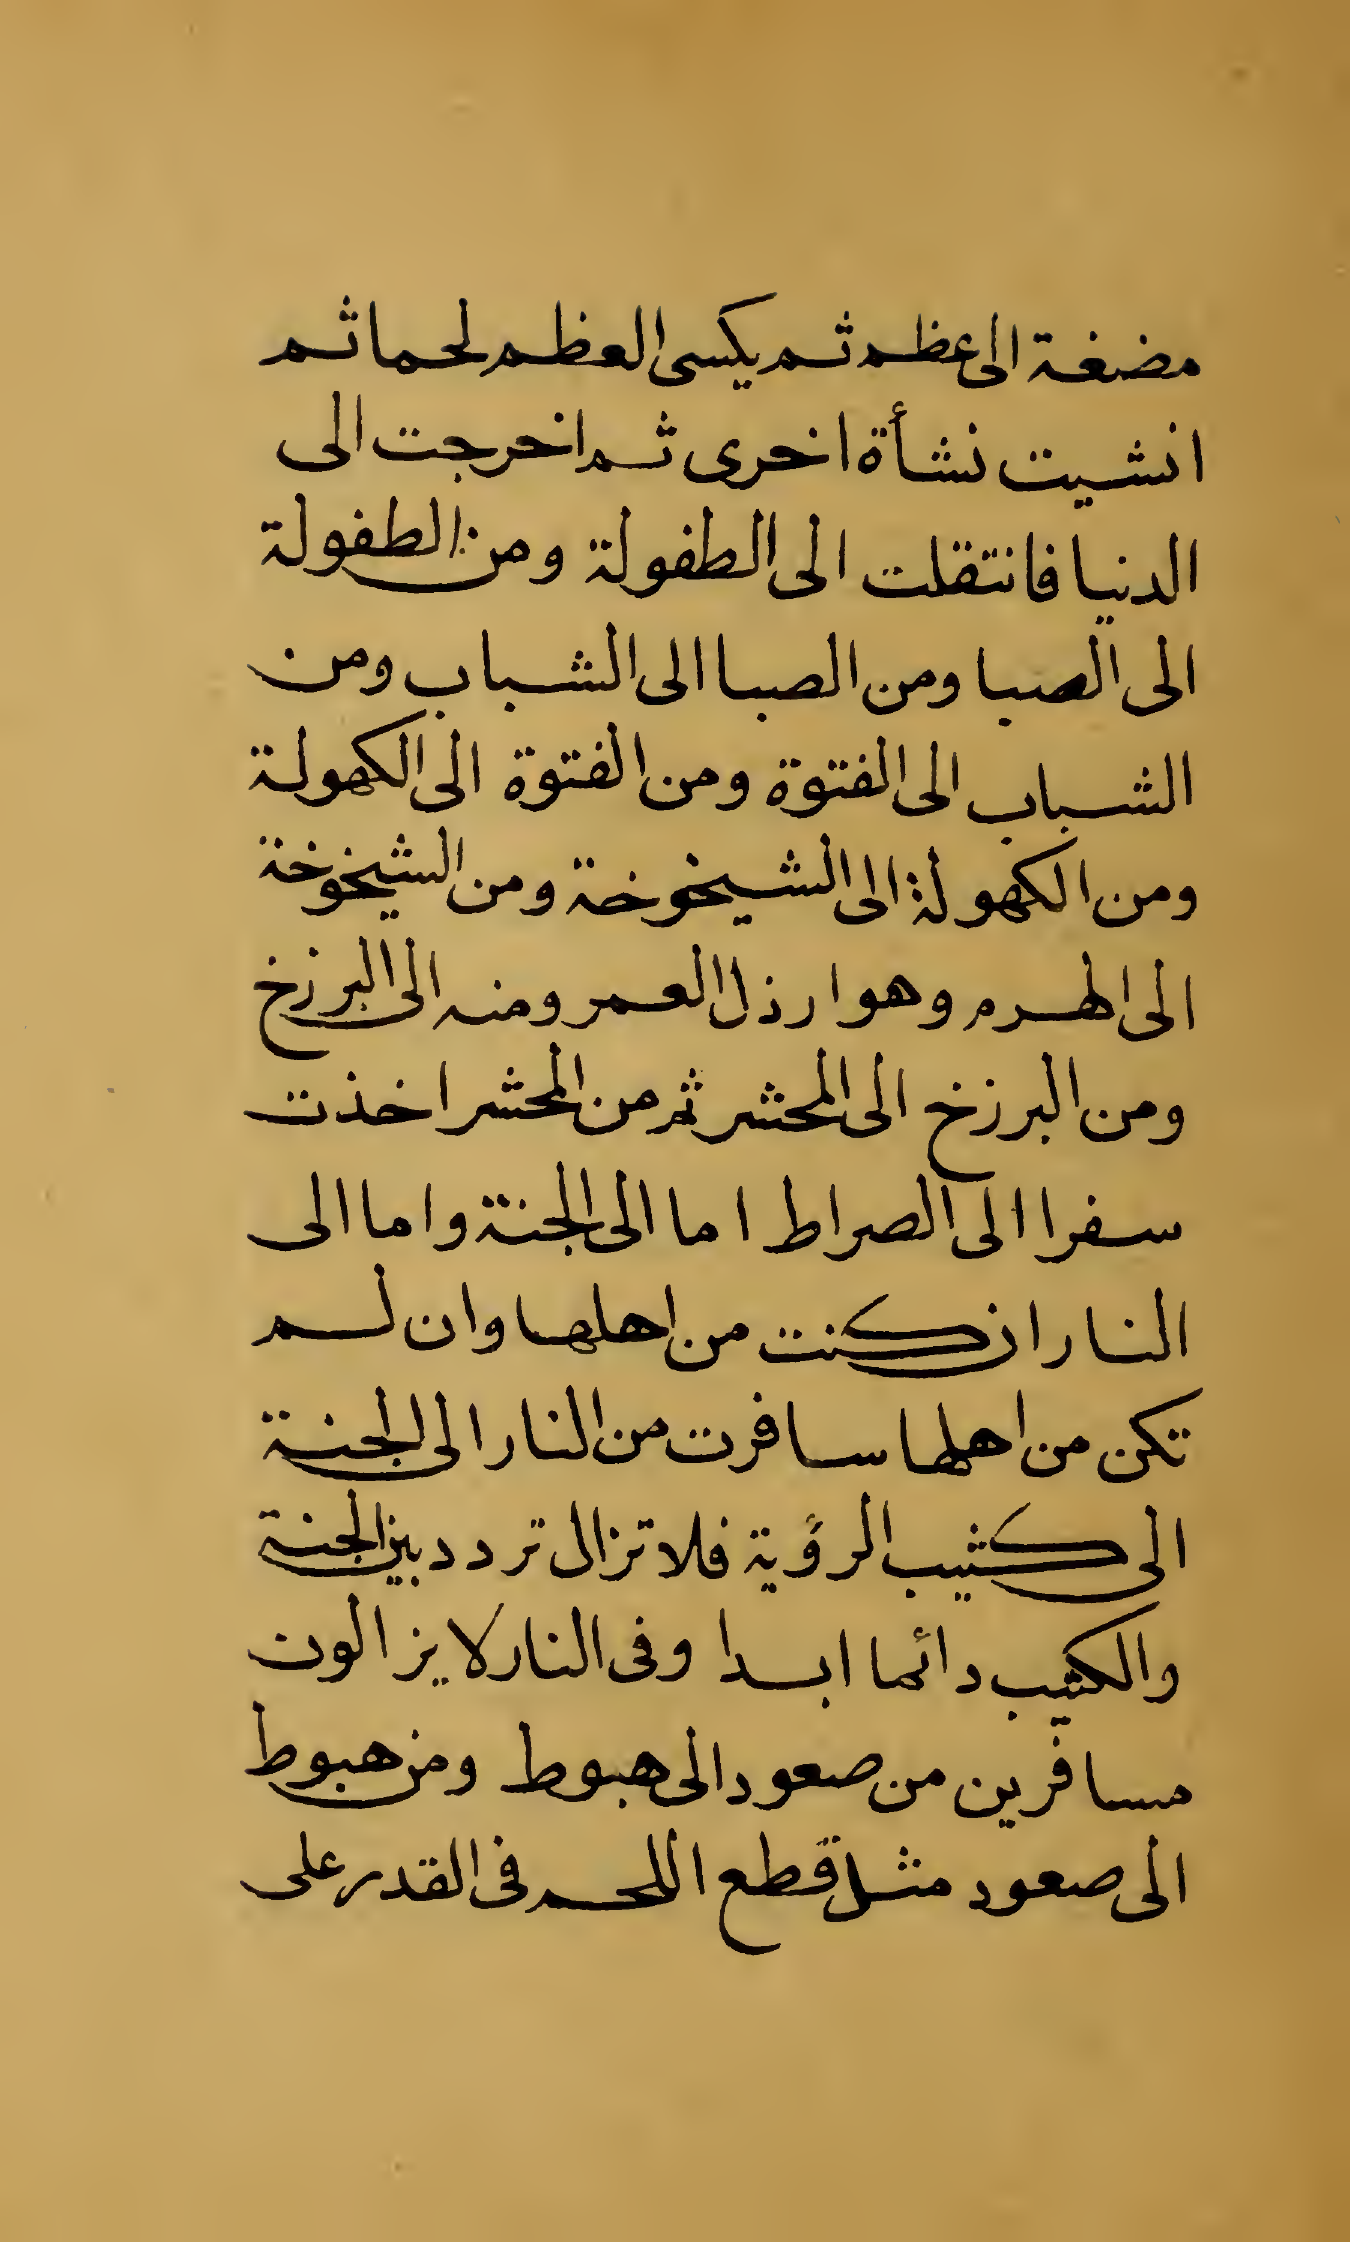 مضغة الى عظم ثم يكسى العظم لحما ثم
انشيت نشأة اخرى ثم اخرجت الى
الدنيا فانتقلت الى الطفولة ومن الطفولة
الى الصبا ومن الصبا الى الشباب ومن
الشباب الى الفتوة ومن الفتوة الى الكهولة
ومن الكهولة الى الشيخوخة ومن الشيخوخة
الى الهرم وهو ارذل العمر ومنه الى البرزخ
ومن البرزخ الى المحشر ثم من المحشر اخذت
سفرا الى الصراط اما الى الجنة واما الى
النار ان كنت من اهلها وان لم
تكن من اهلها سافرت من النار الى الجنة
الى كثيب الرؤية فلا تزال تردد بين الجنة
والكثيب دائما ابدا وفى النار لا يزالون
مسافرين من صعود الى هبوط ومن هبوط
الى صعود مثل قطع اللحم فى القدر على